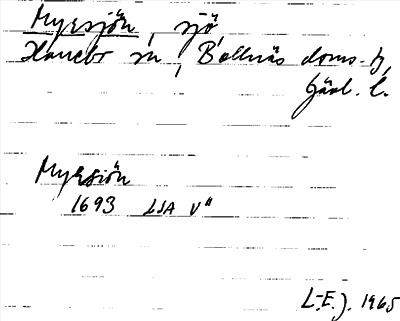 Myrsjön, sjö,
Hanebo sn, Bollnäs doms.-h,
Gävl. l.
Myrsiön
1693 LSA V"
L-E. J. 1965